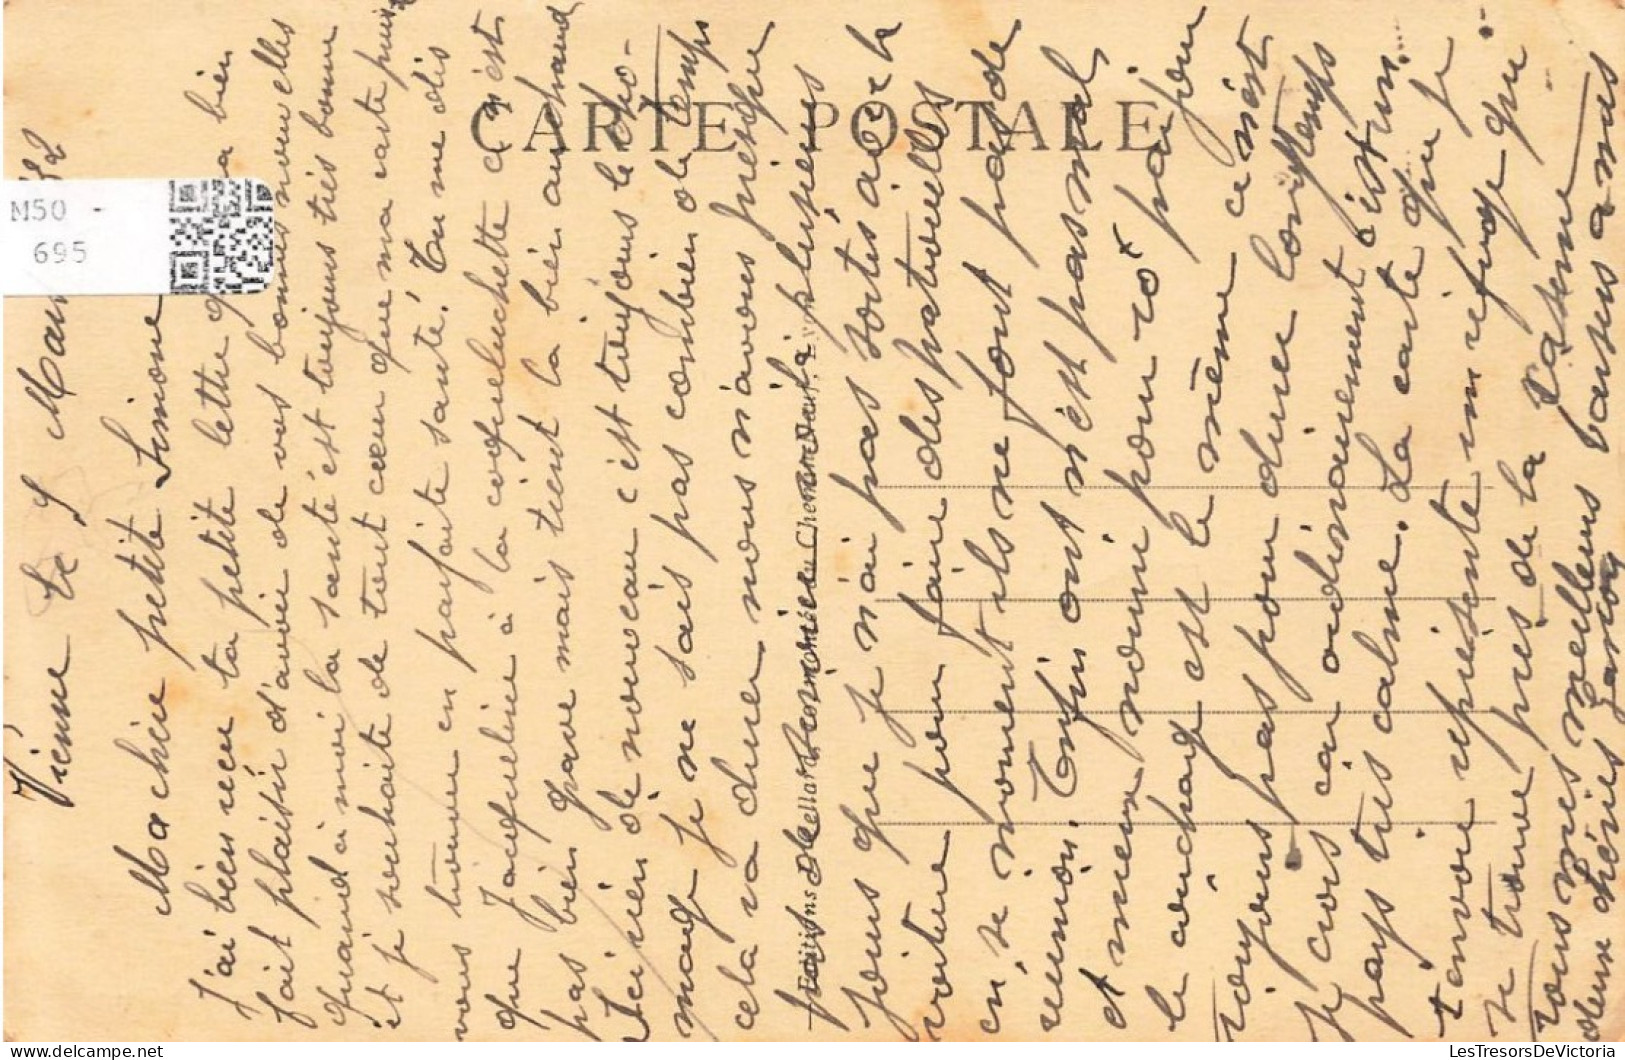 CARTE POSTALE
M50 -
695
Vienne le 9 Mars
Ma chère petite Simone
J'ai bien reçu ta petite lettre q a bien
fait plaisir d'avoir de vos bonnes nouvelles
quand à moi la santé est toujours très bonne
et je souhaite de tout cœur que ma carte puisse
vous trouve en parfaite santé. Tu me dis
que Jacqueline à la coqueluchette ce n'est
pas bien grave mais tient la bien au chaud
Ici rien de nouveau c'est toujours le cho-
mage je ne sais pas combien de temps
cela va durer nous n'avons presque
plusieurs
jours que je n'ai pas sortis avec la
voiture pour faire des patrouilles
en se moment ils ne font pas de
réunion. Enfin ont n'est pas mal
et mieux nourri pour 10f par jour
le couchage est le même ce n'est
toujours pas pour durer longtemps
je crois car ordinairement c'est un
pays très calme. La carte que je
t'envoie représente un refuge qui
se trouve près de la caserne
tous mes meilleurs baisers à mes
deux chéries
Editions Dellaveuve Vienne
LesTresorsDeVictoria